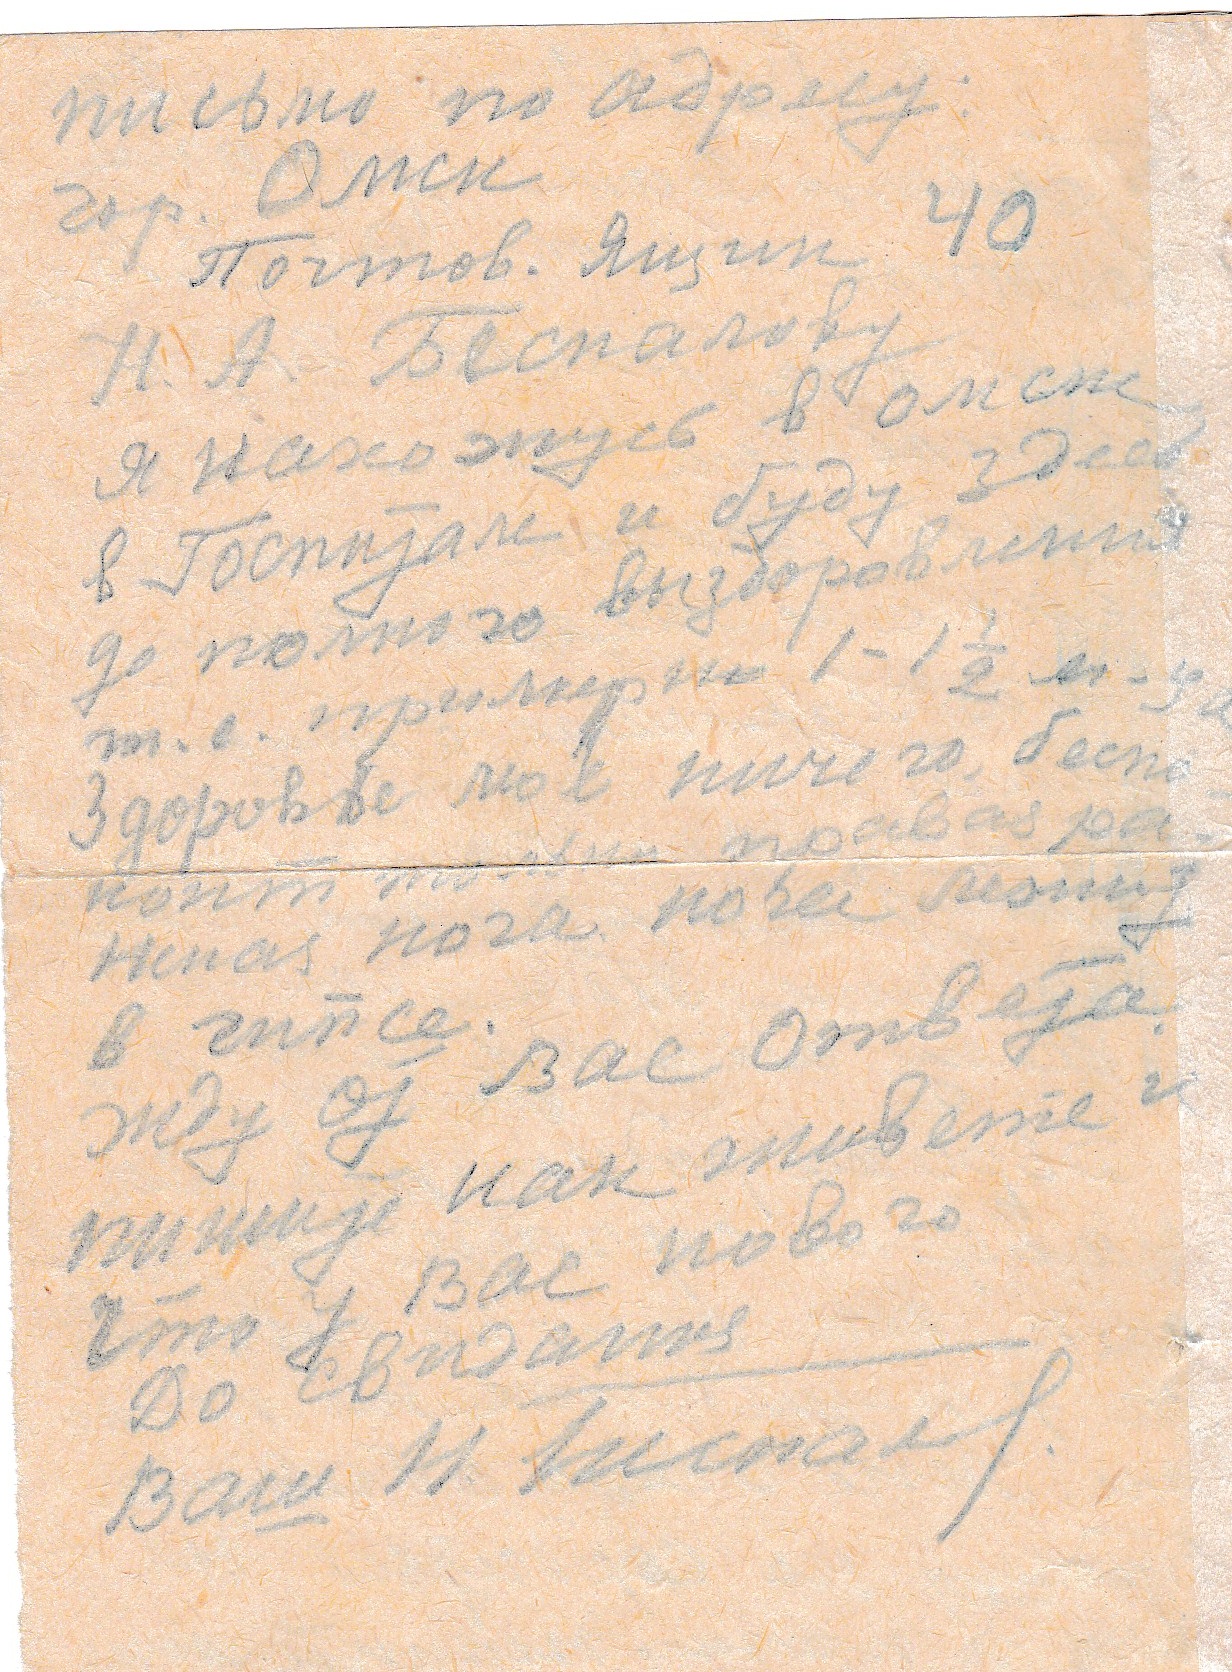 письмо по адресу:
гор. Омск
Почтов. Ящик 40
Н. А. Беспалову
я нахожусь в омск
в Госпитале и буду здесь
до полного выздоровления
т.е. примерно 1-1 1/2 м-ца
Здоровье мое ничего, беспо
коит только правая ра
неная нога пока лежит
в гипсе.
жду от Вас Ответа.
пишите как живете и
что у Вас нового
До свидания
Ваш Н Беспалов.